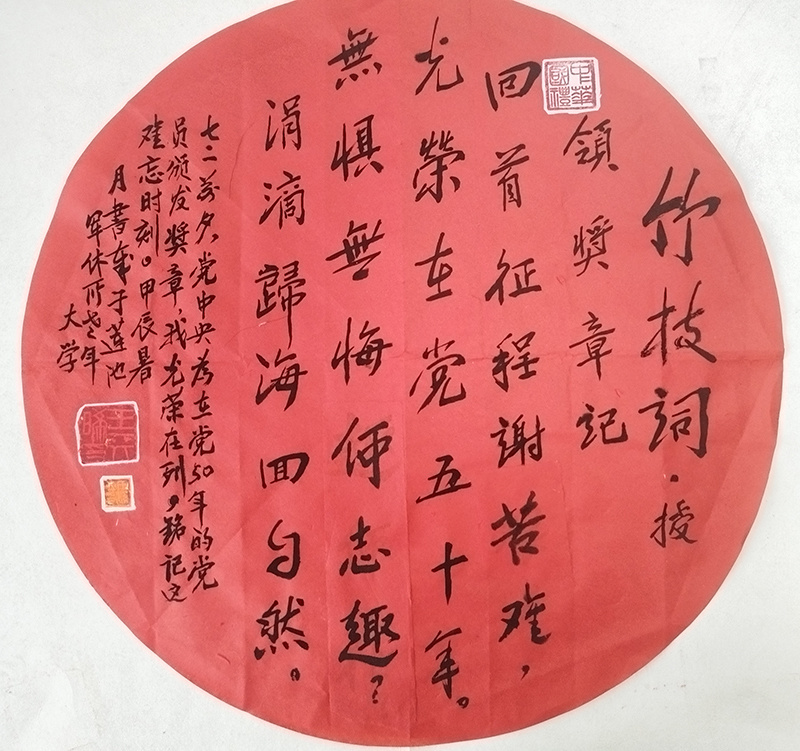 竹枝词·授
領奬章記
回首征程謝苦难，
光榮在党五十年。
無惧無悔何志趣？
涓滴歸海回自然。
七一前夕，党中央为在党50年的党
员颁发奖章，我光荣在列，銘记这
难忘时刻。甲辰暑
月書于莲池
军休所老年
大学
中華